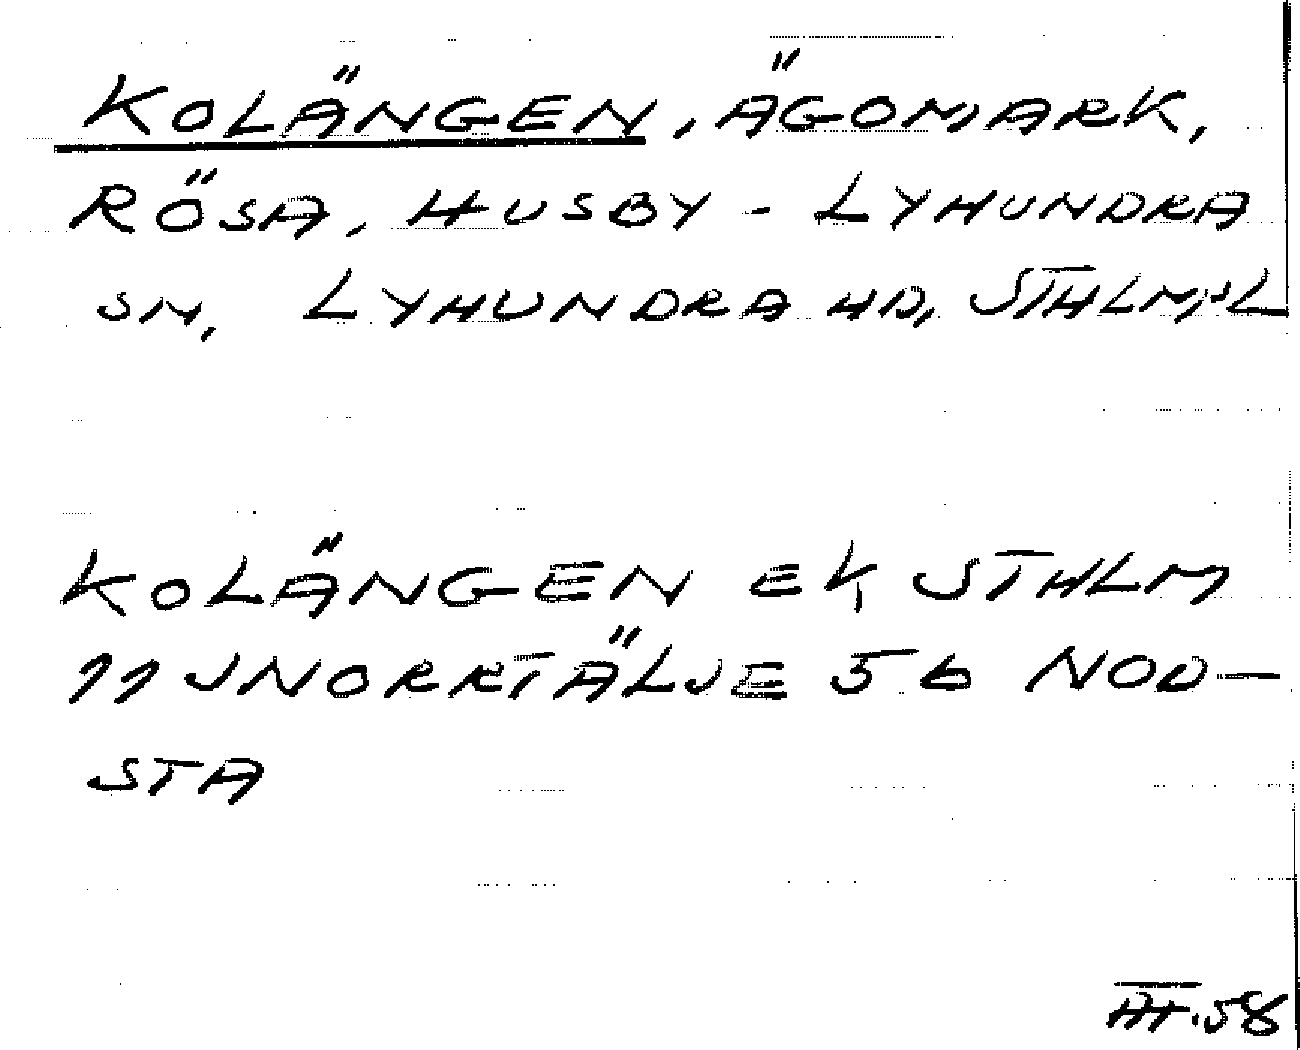 KOLÄNGEN, ÄGOMARK,
RÖSA, HUSBY - LYHUNDRA
SN, LYHUNDRA HD, STHLM:S L
KOLÄNGEN EK STHLM
11 I NORRTÄLJE 5 b NOD-
STA